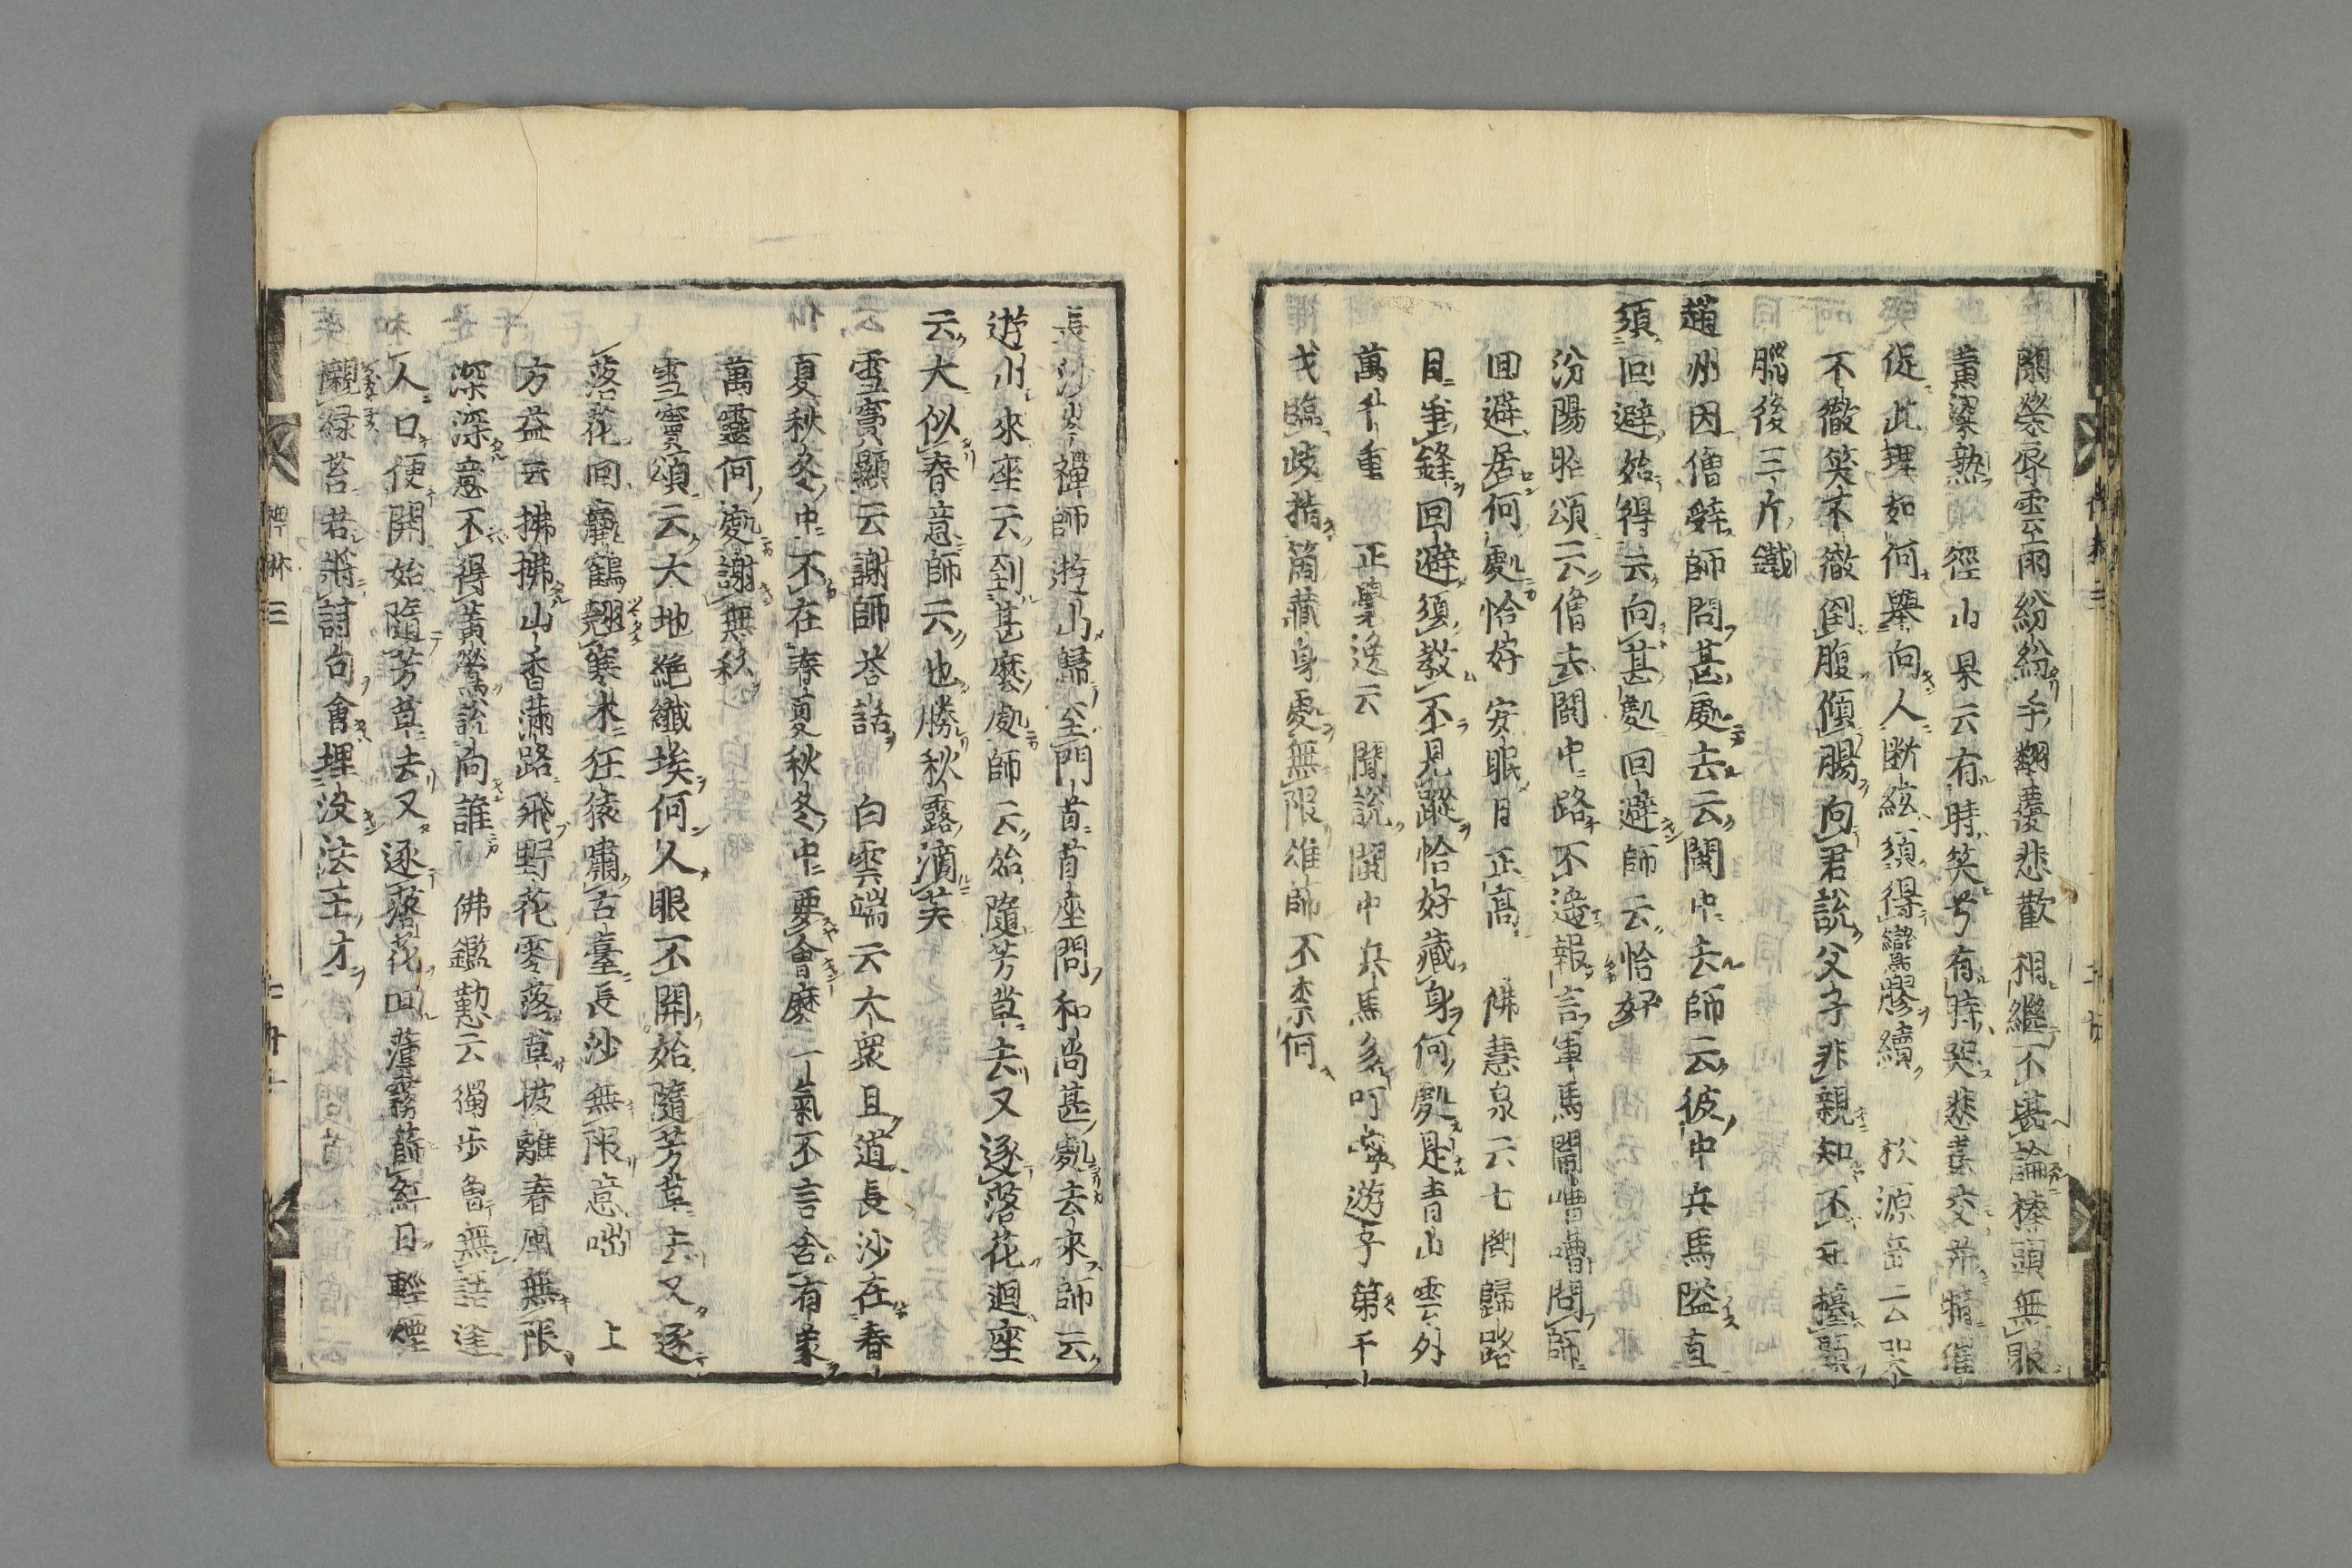 關榮辱雲雨紛紛手翻覆悲歡相繼不堪論棒頭無眼
黃粱熟　徑山杲云有時笑兮有時哭悲喜交并暗催
促此理如何擧向人断絃須得鸞膠續　松源岳云哭
不徹笑不徹倒腹傾腸向君說父子非親知不知擡頭
腦後三斤鐵
趙州因僧辭師問甚處去云閩中去師云彼中兵馬隘直
須回避始得云向甚處回避師云恰好
汾陽昭頌云僧去閩中路不遙報言軍馬鬧嘈嘈問師
回避居何處恰好安眠日正高　佛慧泉云七閩歸路
日垂鋒回避須教不見蹤恰好藏身何處是青山雲外
萬千重　正覺逸云聞說閩中兵馬多叮嚀遊子第千
戈臨岐指箇藏身處無限雄師不柰何
長沙岑禪師遊山歸至門首首座問和尚甚處去來師云
遊山來座云到甚麼處師云始隨芳草去又逐落花迴座
云大似春意師云也勝秋露滴芙
雪竇顯云謝師荅話　白雲端云大衆且道長沙在春
夏秋冬中不在春夏秋冬中要會麼一氣不言含有象
萬靈何處謝無私
雪竇頌云大地絕纖埃何人眼不開始隨芳草去又逐
落花回羸鶴翹寒木狂猿嘯古臺長沙無限意咄　上
方益云拂拂山香滿路飛野花零落草披離春風無限
深深意不得黃鶯說向誰　佛鑑懃云獨步魯無話途
人口便開始隨芳草去又逐落花回薄霧篩紅日輕煙
襯綠苔若將詩句會埋没法王才
禪林三